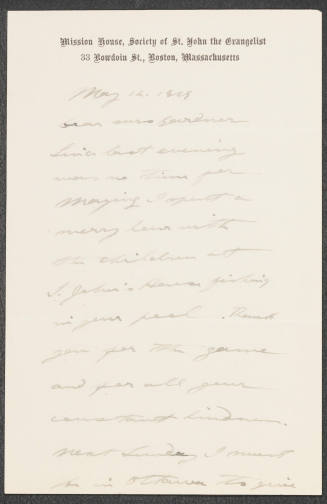 Mission House, Society of St. John the Evangelist
33 Bowdoin St., Boston, Massachusetts
May 12.
Dear Mrs Gardner
Since last evening
was no time for
I spent a
merry hour with
the children at
S. John's House fishing
in your pool. Thank
you for the game
and for all your
constant kindness.
Next Sunday I must
be in Ottawa to give